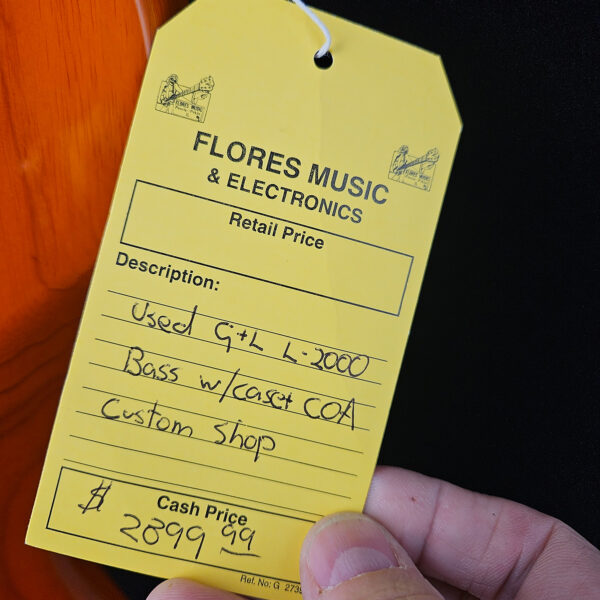 FLORES MUSIC
FLORES MUSIC
FLORES MUSIC
& ELECTRONICS
Retail Price
Description:
Used G+L L-2000
Bass w/case+ COA
Custom Shop
Cash Price
$ 2899 99
Ref. No: G